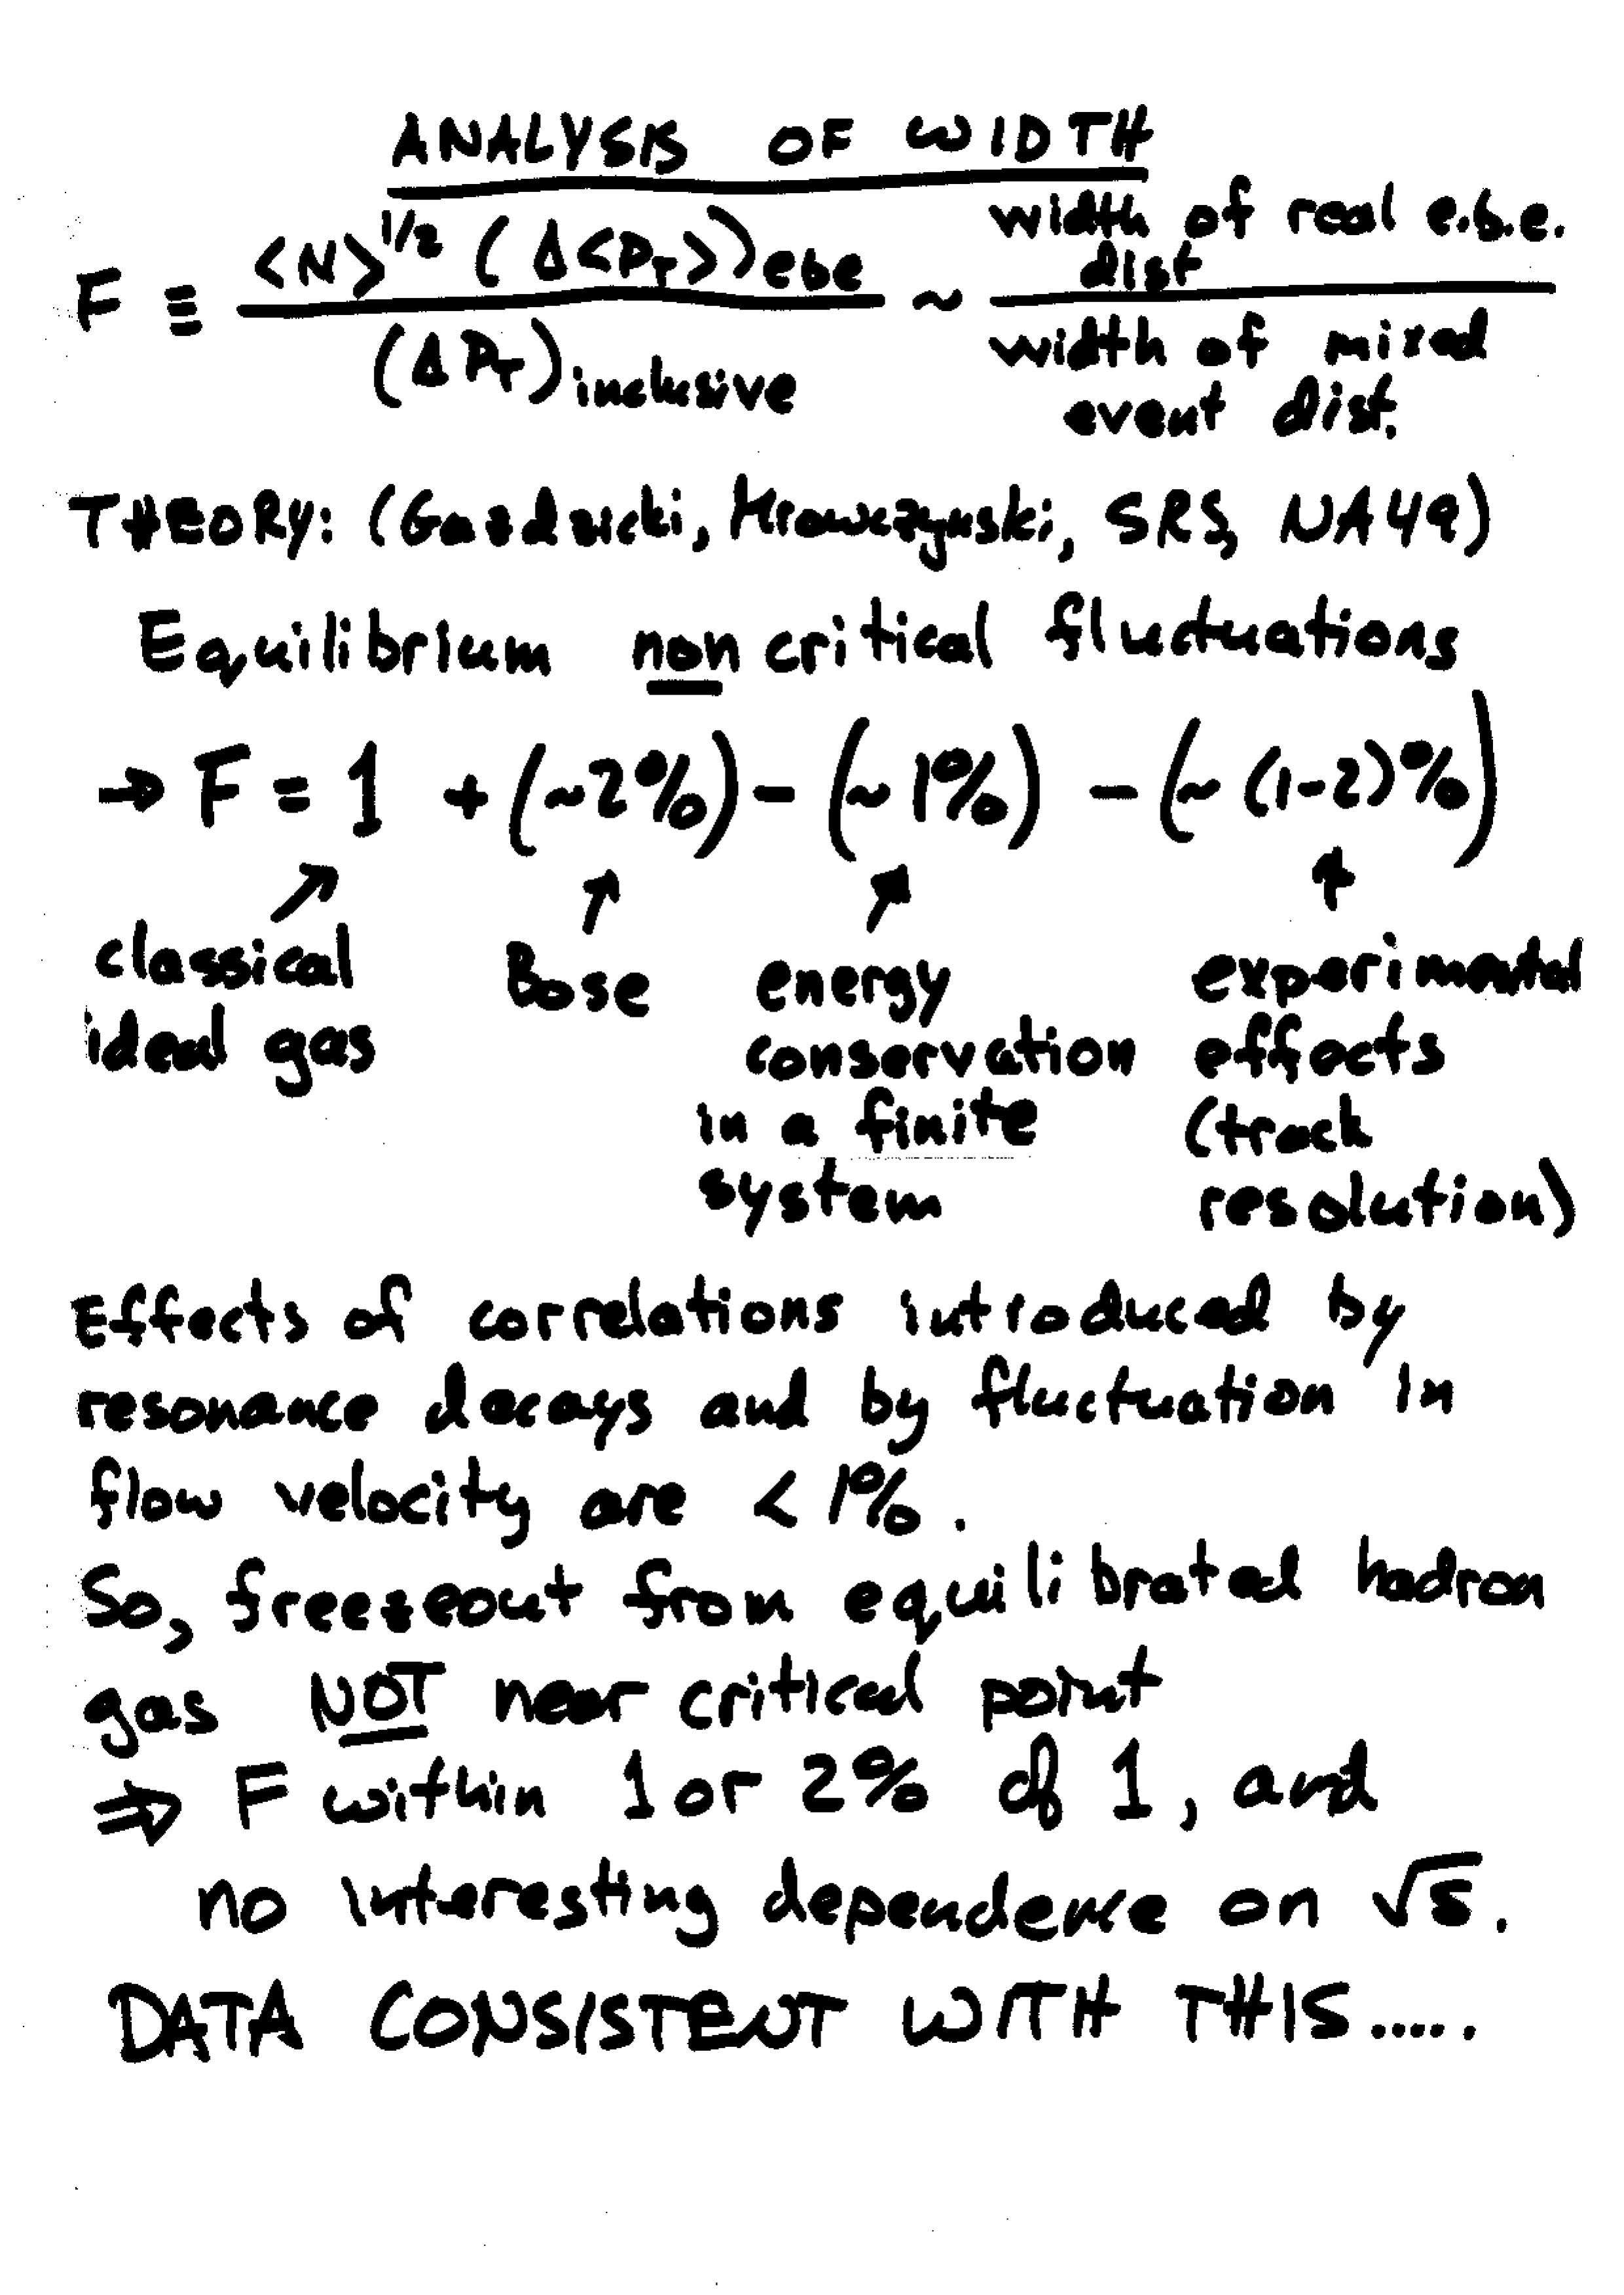 ANALYSIS OF WIDTH
F ≡ <N>^1/2 (Δ<P_T>)_ebe / (ΔP_T)_inclusive ~ width of real e.b.e. dist / width of mixed event dist.
THEORY: (Gazdzicki, Mrowczynski, SRS, NA49)
Equilibrium non critical fluctuations
→ F = 1 + (~2%) - (~1%) - (~(1-2)%)
classical ideal gas
Bose
energy conservation in a finite system
experimental effects (track resolution)
Effects of correlations introduced by
resonance decays and by fluctuation in
flow velocity are < 1%.
So, freezeout from equilibrated hadron
gas NOT near critical point
⇒ F within 1 or 2% of 1, and
no interesting dependence on √s.
DATA CONSISTENT WITH THIS.....